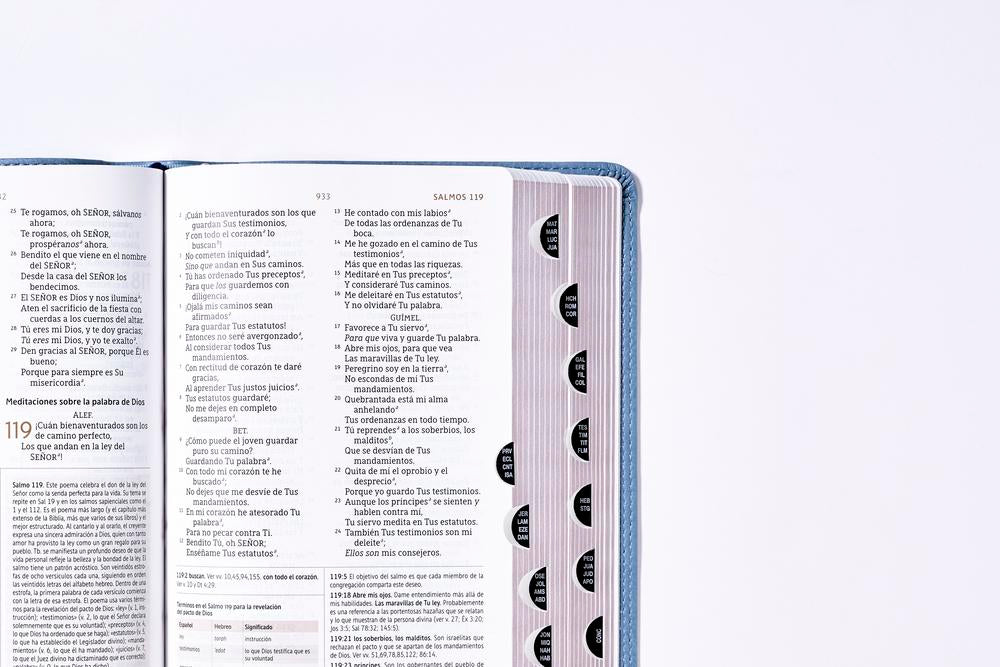 25 Te rogamos, oh SEÑOR, sálvanos
ahora;
Te rogamos, oh SEÑOR,
prospéranos ahora.
26 Bendito el que viene en el nombre
del SEÑOR;
Desde la casa del SEÑOR los
bendecimos.
27 El SEÑOR es Dios y nos ilumina;
Aten el sacrificio de la fiesta con
cuerdas a los cuernos del altar.
28 Tú eres mi Dios, y te doy gracias;
Tú eres mi Dios, y yo te exalto.
29 Den gracias al SEÑOR, porque Él es
bueno;
Porque para siempre es Su
misericordia.
Meditaciones sobre la palabra de Dios
ALEF.
119 ¡Cuán bienaventurados son los
de camino perfecto,
Los que andan en la ley del
SEÑOR!
Salmo 119. Este poema celebra el don de la ley del
Señor como la senda perfecta para la vida. Su tema se
repite en Sal 19 y en los salmos sapienciales como el
1 y el 112. Es el poema más largo (y el capítulo más
extenso de la Biblia, más que varios de sus libros) y el
mejor estructurado. Al cantarlo y al orarlo, el creyente
expresa una sincera admiración a Dios, quien con tanto
amor ha provisto la ley como un gran regalo para su
pueblo. Tb. se manifiesta un profundo deseo de que la
vida personal refleje la belleza y la bondad de la ley. El
salmo tiene un patrón acróstico. Son veintidós estro-
fas de ocho versículos cada una, siguiendo en orden
las veintidós letras del alfabeto hebreo. Dentro de una
estrofa, la primera palabra de cada versículo comienza
con la letra de esa estrofa. El poema usa varios térmi-
nos para la revelación del pacto de Dios: «ley» (v. 1, ins-
trucción); «testimonios» (v. 2, lo que el Señor declara
solemnemente que es su voluntad); «preceptos» (v. 4,
lo que Dios ha ordenado que se haga); «estatutos» (v. 5,
lo que ha establecido el Legislador divino); «manda-
mientos» (v. 6, lo que él manda que se haga); «juicios» (v. 7,
lo que el Juez divino ha dictaminado que es correcto)
933
SALMOS 119
2 ¡Cuán bienaventurados son los que
guardan Sus testimonios,
Y con todo el corazón lo
buscan!
3 No cometen iniquidad,
Sino que andan en Sus caminos.
4 Tú has ordenado Tus preceptos,
Para que los guardemos con
diligencia.
5 ¡Ojalá mis caminos sean
afirmados
Para guardar Tus estatutos!
6 Entonces no seré avergonzado,
Al considerar todos Tus
mandamientos.
7 Con rectitud de corazón te daré
gracias,
Al aprender Tus justos juicios.
8 Tus estatutos guardaré;
No me dejes en completo
desamparo.
BET.
9 ¿Cómo puede el joven guardar
puro su camino?
Guardando Tu palabra.
10 Con todo mi corazón te he
buscado;
No dejes que me desvíe de Tus
mandamientos.
11 En mi corazón he atesorado Tu
palabra,
Para no pecar contra Ti.
12 Bendito Tú, oh SEÑOR;
Enséñame Tus estatutos.
13 He contado con mis labios
De todas las ordenanzas de Tu
boca.
14 Me he gozado en el camino de Tus
testimonios,
Más que en todas las riquezas.
15 Meditaré en Tus preceptos,
Y consideraré Tus caminos.
16 Me deleitaré en Tus estatutos,
Y no olvidaré Tu palabra.
GUÍMEL.
17 Favorece a Tu siervo,
Para que viva y guarde Tu palabra.
18 Abre mis ojos, para que vea
Las maravillas de Tu ley.
19 Peregrino soy en la tierra,
No escondas de mí Tus
mandamientos.
20 Quebrantada está mi alma
anhelando
Tus ordenanzas en todo tiempo.
21 Tú reprendes a los soberbios, los
malditos,
Que se desvían de Tus
mandamientos.
22 Quita de mí el oprobio y el
desprecio,
Porque yo guardo Tus testimonios.
23 Aunque los príncipes se sienten y
hablen contra mí,
Tu siervo medita en Tus estatutos.
24 También Tus testimonios son mi
deleite;
Ellos son mis consejeros.
119:2 buscan. Ver vv. 10,45,94,155. con todo el corazón.
Ver v. 10 y Dt 4:29.
Términos en el Salmo 119 para la revelación
del pacto de Dios
Español Hebreo Significado
ley torah instrucción
testimonios 'edot lo que Dios testifica que es
su voluntad
119:5 El objetivo del salmo es que cada miembro de la
congregación comparta este deseo.
119:18 Abre mis ojos. Dame entendimiento más allá de
mis habilidades. Las maravillas de Tu ley. Probablemente
es una referencia a las portentosas hazañas que se relatan
y lo que muestran de la persona divina (ver v. 27; Ex 3:20;
Jos 3:5; Sal 78:32; 145:5).
119:21 los soberbios, los malditos. Son israelitas que
rechazan el pacto y que se apartan de los mandamientos
de Dios. Ver vv. 51,69,78,85,122; 86:14.
119:23 príncipes. Son los gobernantes del pueblo de
MAT
MAR
LUC
JUA
HCH
ROM
COR
GAL
EFE
FIL
COL
TES
TIM
TIT
FLM
PRV
ECL
CNT
ISA
HEB
STG
JER
LAM
EZE
DAN
PED
JUA
JUD
APO
OSE
JOL
AMS
ABD
JON
MIQ
NAH
HAB
CONC